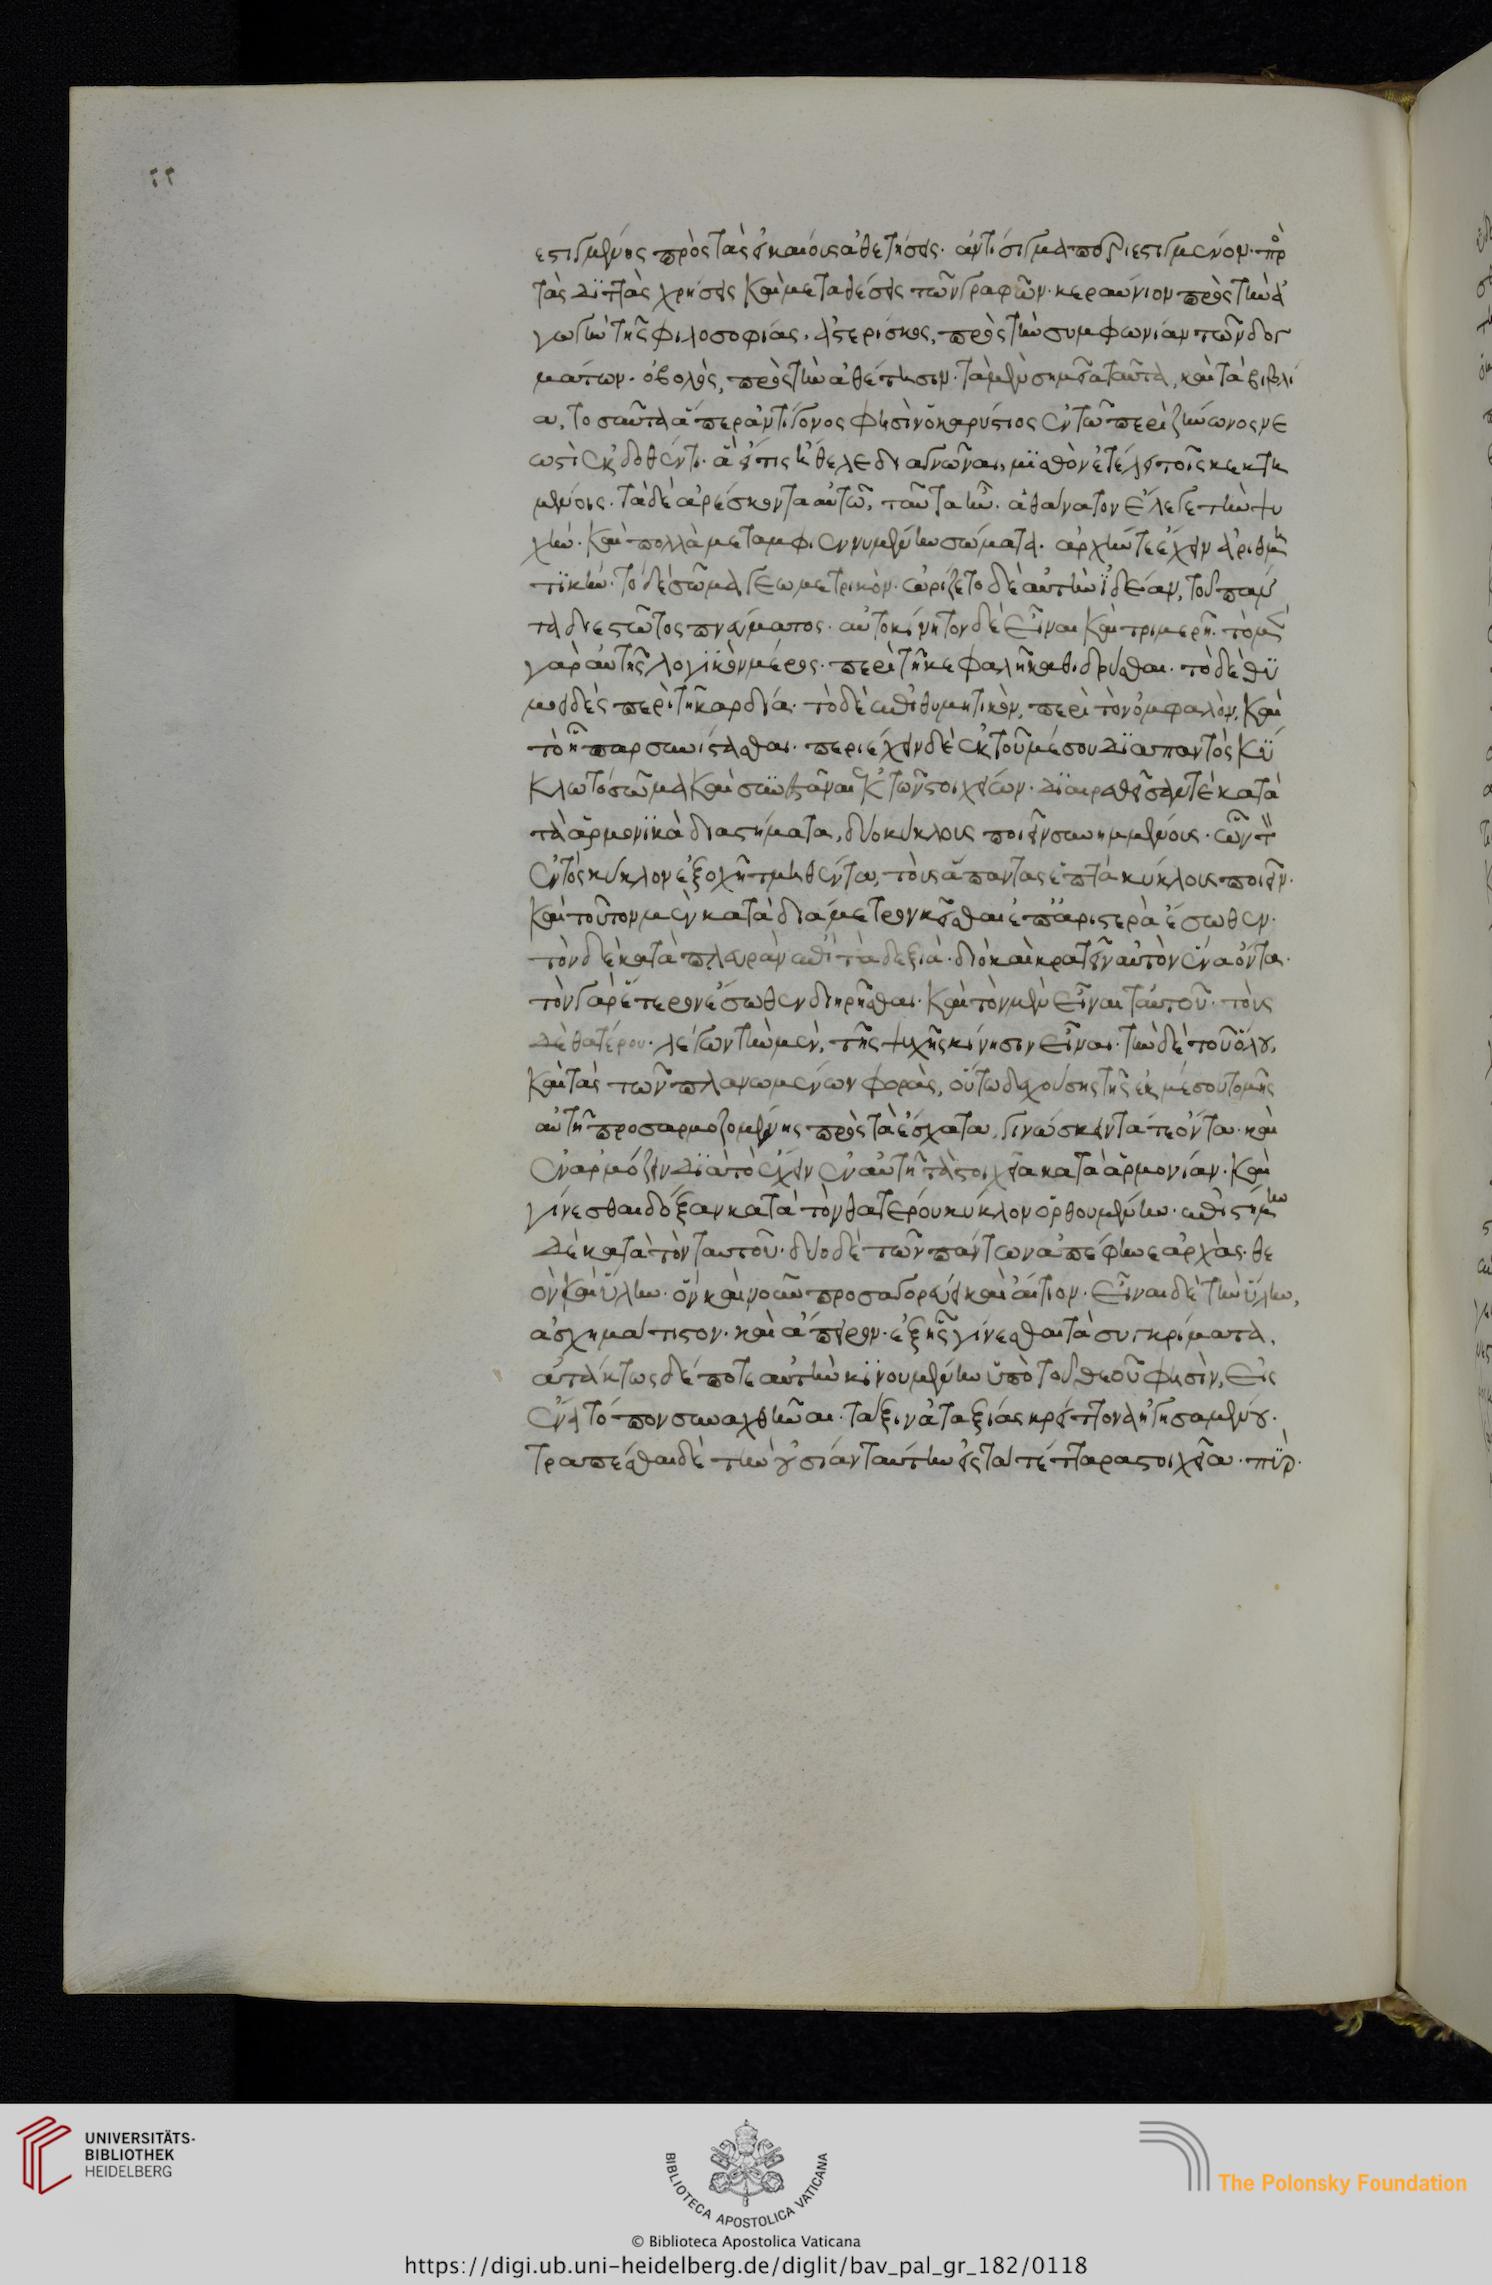 εστιγμένης πρὸς τὰς εἰκαίους ἀθετήσεις· ἀντίσιγμα περιεστιγμένον· πρὸ
τὰς διττὰς χρήσεις καὶ μεταθέσεις τῶν γραφῶν· κεραύνιον πρὸς τὴν ἀ
γωγὴν τῆς φιλοσοφίας· ἀστερίσκος, πρὸς τὴν συμφωνίαν τῶν δογ
μάτων· ὀβολὸς, πρὸς τὴν ἀθέτησιν· τὰ μὲν σημεῖα ταῦτα, καὶ τὰ βιβλί
α, τοσαῦτα ἅπερ ἀντίγονος φησὶν ὁ καρύστιος ἐν τῶ περὶ ζήνωνος νε
ωστὶ ἐκδοθέντι· ἃ εἴτις ἤθελε διαγνῶναι, μισθὸν ἐτέλει τοῖς κεκτη
μένοις· τὰ δὲ ἀρέσκοντα αὐτῶ, ταῦτα ἦν· ἀθάνατον ἔλεγε τὴν ψυ
χὴν· καὶ πολλὰ μεταμφιεννυμένην σώματα· ἀρχήν τε ἔχειν ἀριθμη
τικήν· τὸ δὲ σῶμα γεωμετρικὸν· ὡρίζετο δὲ αὐτὴν ἰδέαν, τοῦ πάν
τα διεστῶτος πνεύματος· αὐτοκίνητον δὲ εἶναι καὶ τριμερῆ· τὸ μὲν
γὰρ αὐτῆς λογικὸν μέρος· περὶ τῆ κεφαλῆ καθιδρύσθαι· τὸ δὲ θυ
μοειδὲς περὶ τῆ καρδία· τὸ δὲ ἐπιθυμητικὸν, περὶ τὸν ὀμφαλὸν, καὶ
τὸ ἧπαρ συνίστασθαι· περιέχειν δὲ ἐκ τοῦ μέσου διαπαντὸς κύ
κλω τὸ σῶμα καὶ συνεστάναι ἐκ τῶν στοιχείων· διαιρεθεῖσάν τε κατὰ
τὰ ἁρμονικὰ διαστήματα, δύο κύκλους ποιεῖν συνημμένους· ὧν τὸν
ἐντὸς κύκλον ἑξαχῆ τμηθέντα, τοὺς ἅπαντας ἑπτὰ κύκλους ποιεῖν·
καὶ τοῦτον μὲν κατὰ διάμετρον κεῖσθαι ἐπ' ἀριστερὰ ἔσωθεν·
τὸν δὲ κατὰ πλευρὰν ἐπὶ τὰ δεξιά· διὸ καὶ κρατεῖν αὐτὸν ἕνα ὄντα·
τὸν γὰρ ἕτερον ἔσωθεν διηρῆσθαι· καὶ τὸν μὲν εἶναι ταὐτοῦ· τοὺς
δὲ θατέρου· λέγων τὴν μὲν, τῆς ψυχῆς κίνησιν εἶναι· τὴν δὲ τοῦ ὅλου,
καὶ τὰς τῶν πλανωμένων φορὰς, οὕτω δ' ἐχούσης τῆς ἐκ μέσου τομῆς
αὐτῆ προσαρμοζομένης πρὸς τὰ ἔσχατα, γινώσκειν τά τε ὄντα· καὶ
ἐναρμόζειν διὰ τὸ ἔχειν ἐν αὐτῆ τὰ στοιχεῖα κατὰ ἁρμονίαν· καὶ
γίνεσθαι δόξαν κατὰ τὸν θατέρου κύκλον ὀρθουμένην· ἐπιστήμην
δὲ κατὰ τὸν ταυτοῦ· δύο δὲ τῶν πάντων ἀπέφηνε ἀρχὰς· θε
ὸν καὶ ὕλην· ὃν καὶ νοῦν προσαγορεύει καὶ αἴτιον· εἶναι δὲ τὴν ὕλην,
ἀσχημάτιστον· καὶ ἄπειρον· ἐξ ἧς γίνεσθαι τὰ συγκρίματα,
ἀτάκτως δέ ποτε αὐτὴν κινουμένην ὑπὸ τοῦ θεοῦ φησὶν, εἰς
ἕνα τόπον συναχθῆναι· τάξιν ἀταξίας κρείττονα ἡγησαμένου·
τραπέσθαι δὲ τὴν οὐσίαν ταύτην εἰς τὰ τέτταρα στοιχεῖα· πῦρ·
UNIVERSITÄTS-
BIBLIOTHEK
HEIDELBERG
BIBLIOTECA APOSTOLICA VATICANA
© Biblioteca Apostolica Vaticana
The Polonsky Foundation
https://digi.ub.uni-heidelberg.de/diglit/bav_pal_gr_182/0118